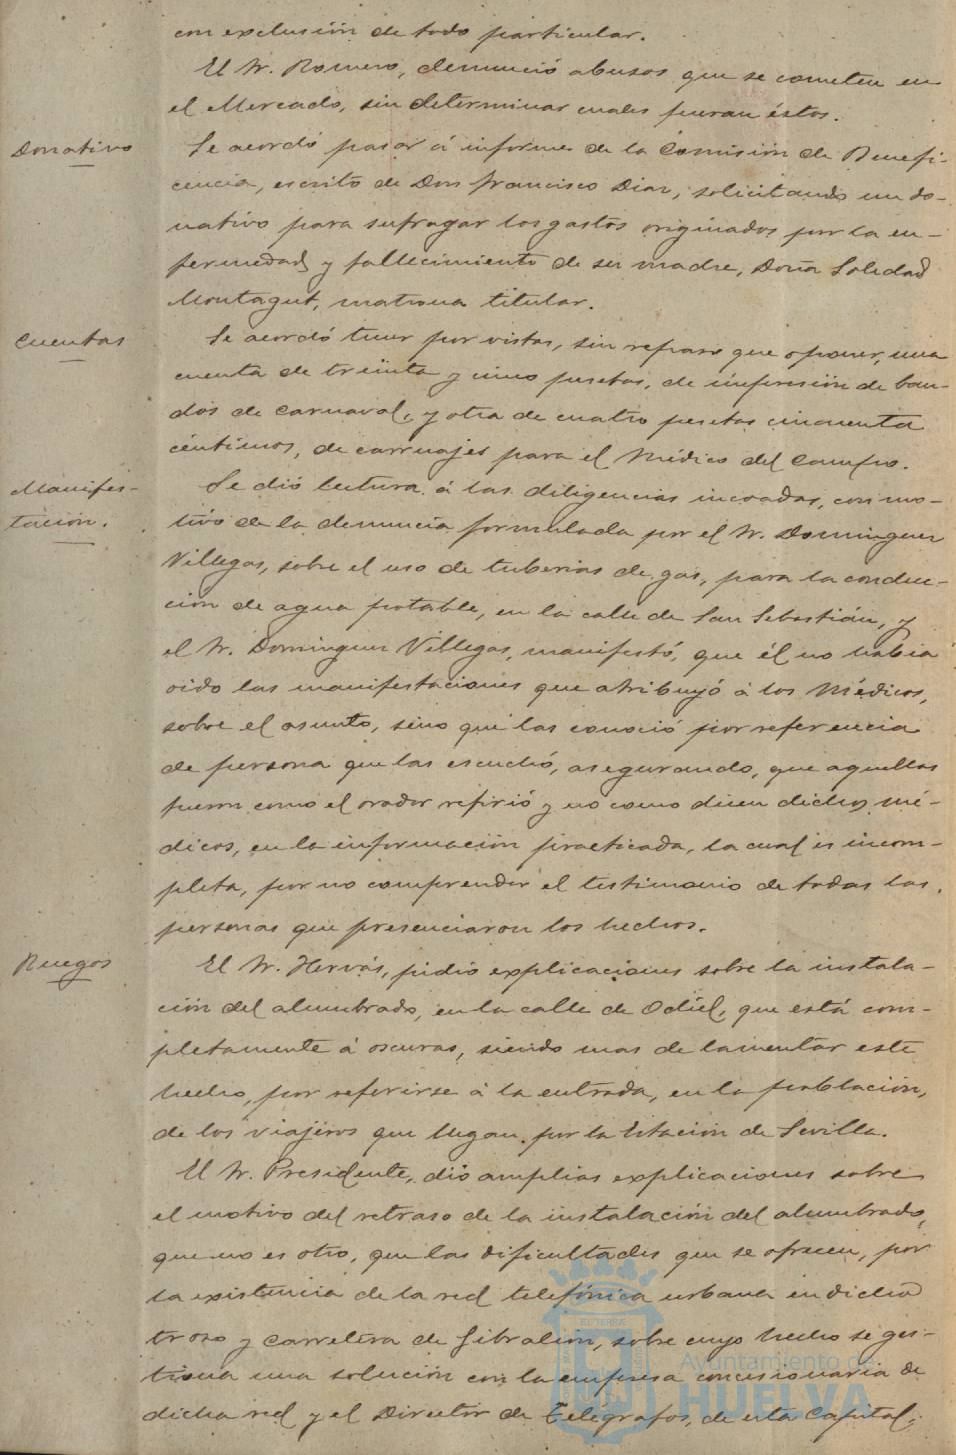 con exclusión de todo particular.
El Sr. Romero, denunció abusos que se cometen en
el Mercado, sin determinar cuales fueran éstos.
Donativo
Se acordó pasar á informe de la Comisión de Benefi-
cencia, escrito de Don Francisco Diaz, solicitando un do-
nativo para sufragar los gastos originados por la en-
fermedad y fallecimiento de su madre, Doña Soledad
Montagut, matrona titular.
Cuentas
Se acordó tener por vistas, sin reparo que oponer, una
cuenta de treinta y cinco pesetas, de impresión de ban-
dos de Carnaval, y otra de cuatro pesetas cincuenta
céntimos, de carruajes para el Médico del Campo.
Manifes-
tación.
Se dió lectura á las diligencias incoadas, con mo-
tivo de la denuncia formulada por el Sr. Dominguez
Villegas, sobre el uso de tuberias de gas, para la conduc-
ción de agua potable, en la calle de San Sebastián, y
el Sr. Dominguez Villegas, manifestó, que él no habia
oido las manifestaciones que atribuyó á los Médicos,
sobre el asunto, sino que las conoció por referencia
de persona que las escuchó, asegurando, que aquellas
fueron como el orador refirió y no como dicen dichos mé-
dicos, en la información practicada, la cual es incom-
pleta, por no comprender el testimonio de todas las
personas que presenciaron los hechos.
Ruegos
El Sr. Hervás, pidió explicaciones sobre la instala-
ción del alumbrado, en la calle de Odiel, que está com-
pletamente á oscuras, siendo mas de lamentar este
hecho, por referirse á la entrada, en la población,
de los viajeros que llegan por la Estación de Sevilla.
El Sr. Presidente, dió amplias explicaciones sobre
el motivo del retraso de la instalación del alumbrado,
que no es otro, que las dificultades que se ofrecen, por
la existencia de la red telefónica urbana en dicho
trozo y carretera de Gibraleón, sobre cuyo hecho se ges-
tiona una solución con la empresa concesionaria de
dicha red y el Director de Telégrafos, de esta Capital;
Ayuntamiento de
HUELVA